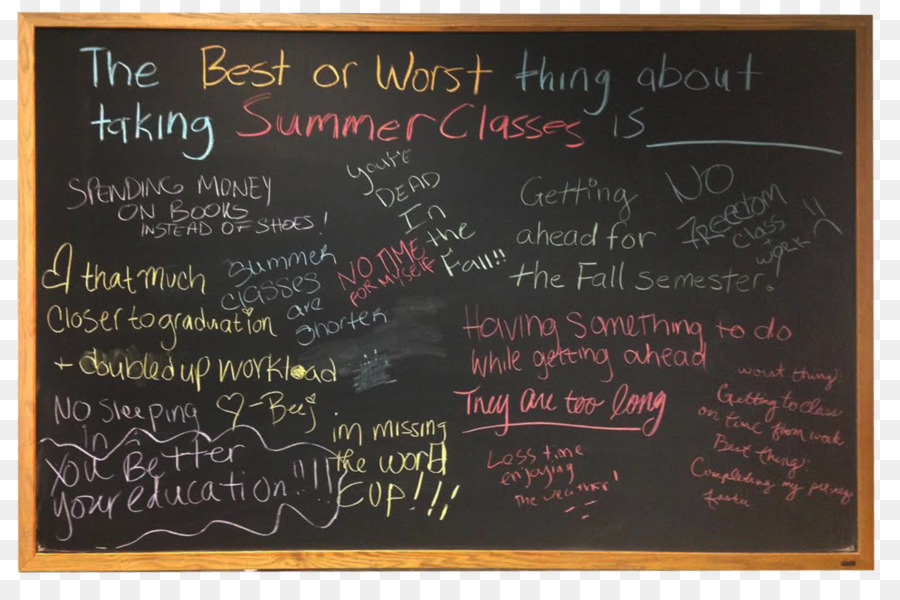 The Best or Worst thing about
taking Summer Classes is
SPENDING MONEY
ON BOOKS
INSTEAD OF SHOES!
You're
DEAD
In
the
Fall!!
Getting
ahead for
the Fall semester!
NO
FREEDOM
Class
work!!
that much
Closer to graduation
+ doubled up workload
♡-Beej
Summer
classes
are
shorter
NO TIME
FOR MYSELF
Having something to do
while getting ahead
They are too long
NO Sleeping
in
You Better
your education!!!!
im missing
the world
CUP!!!
Less time
enjoying
the weather!
worst thing:
Getting to class
on time from work
Best thing:
Completing my